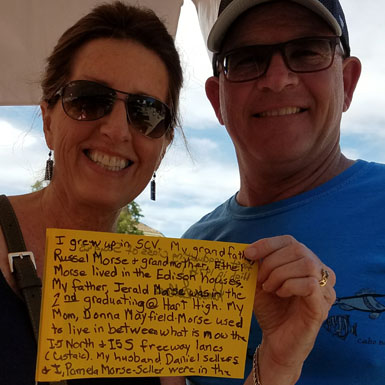 I grew up in SCV. My grandfath
Russel Morse + grandmother, Ethel
Morse lived in the Edison houses.
My father, Jerald Morse was in the
2nd graduating @ Hart High. My
Mom, Donna Mayfield-Morse used
to live in between what is now the
I-5 North + I-5 S freeway lanes
(Castaic). My husband Daniel Sellers
+ I, Pamela Morse-Seller were in the